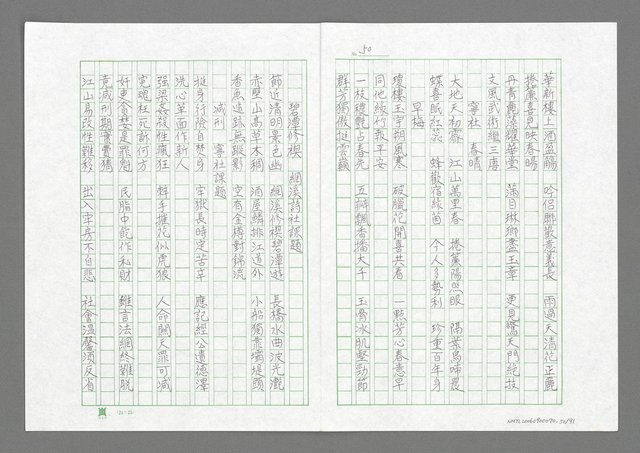 No. 50
華新樓上酒盈觴　吟侶聯歡意義長　雨過天清花正麗
捲簾喜見映春暘
丹青麗藻耀華堂　滿目琳瑯盡玉章　更見驚天門絕技
文風武術繼三唐
寧社　春晴
大地天初霽　江山萬里春　捲簾陽照眼　隔葉鳥啼晨
蝶喜眠紅蕊　蜂歡宿綠茵　今人多勢利　珍重百年身
早梅
瓊樓玉宇朔風寒　破臘花開喜共看　一點芳心春意早
同他綠竹報平安
一枝穠艷占春先　五瓣飄香播大千　玉骨冰肌堅勁節
群芳獨傲挺雲巔
碧潭修禊　網溪詩社課題
節近清明景色幽　網溪修禊碧潭遊　長橋水曲波光瀲
赤壁山高草木稠　酒屋鱗排江道外　小船獨靠壩堤頭
香魚遺跡無蹤影　空有金樽對錦流
減刑　寧社課題
挺身行險自焚身　牢獄長時定苦辛　應記經公遺德澤
洗心革面作新人
強梁姦殺性瘋狂　辣手摧花似虎狼　人命關天罪可減
冤魂枉死訴何方
奸吏貪婪是罪魁　民脂中飽作私財　雖言法網終難脫
竟減刑期實費猜
江山易改性難移　出入牢房不自悲　社會溫馨須反省
NMTL20060900090-50/91